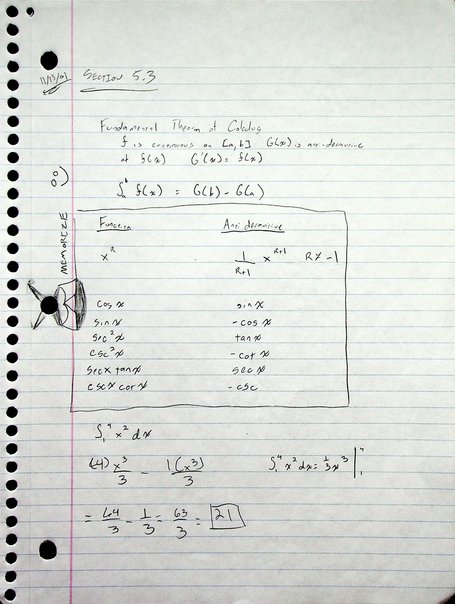 12/13/01
SECTION 5.3
Fundamental Theorem of Calculus
f is continuous on [a,b] G(x) is anti-derivative
of f(x) G'(x) = f(x)
∫ₐᵇ f(x) = G(b) - G(a)
MEMORIZE
Function Anti derivative
xᴿ 1/(R+1) xᴿ⁺¹ R ≠ -1
cos x sin x
sin x -cos x
sec²x tan x
csc²x -cot x
sec x tan x sec x
csc x cot x -csc
∫₁⁴ x² dx
(4)x³/3 - 1(x³)/3 ∫₁⁴ x² dx = 1/3 x³ |₁⁴
= 64/3 - 1/3 = 63/3 = 21